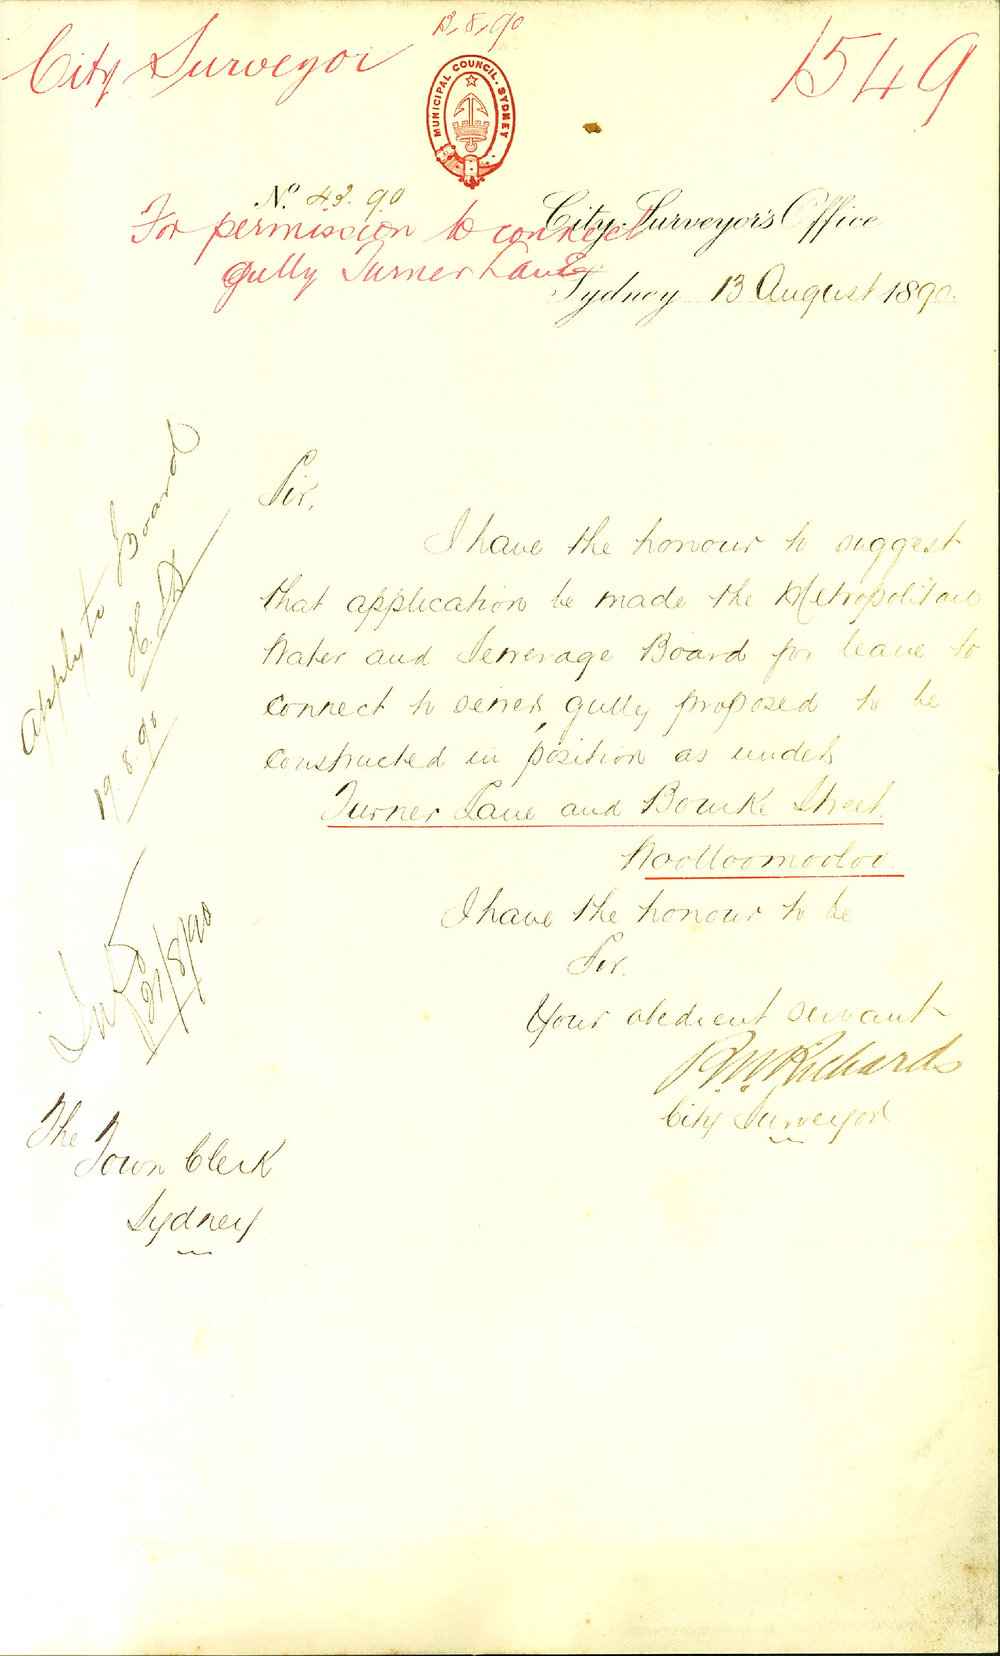 City Surveyor
13.8.90
1549
MUNICIPAL COUNCIL. SYDNEY
No. 43.90
City Surveyor's Office
For permission to connect
gully Turner Lane
Sydney 13 August 1890.
Sir,
I have the honour to suggest
that application be made the Metropolitan
Water and Sewerage Board for leave to
connect to sewer, gully proposed to be
constructed in position as under
Turner Lane and Bourke Street
Woolloomooloo.
I have the honour to be
Sir.
Your obedient servant
R.W. Richards
City Surveyor
Apply to Board
19.8.90
21/8/90
The
Town Clerk
Sydney